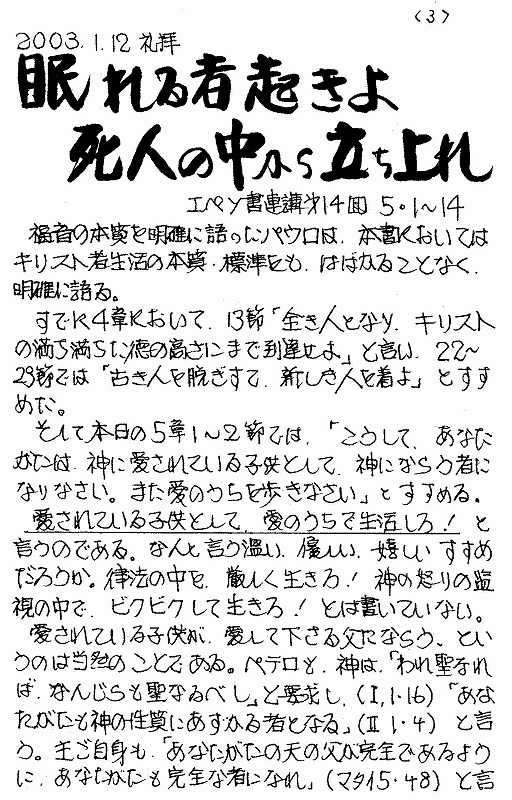 〈3〉
2003.1.12 礼拝
眠れる者起きよ
死人の中から立ち上れ
エペソ書連講才14回 5・1〜14
福音の本質を明確に語ったパウロは、本書においては
キリスト者生活の本質・標準をも、はばかることなく、
明確に語る。
すでに4章において、13節「全き人となり、キリスト
の満ち満ちた徳の高さにまで到達せよ」と言い、22〜
23節では「古き人を脱ぎすて、新しき人を着よ」とすす
めた。
そして本日の5章1〜2節では、「こうして、あなた
がたは、神に愛されている子供として、神にならう者に
なりなさい。また愛のうちを歩きなさい」とすすめる。
愛されている子供として、愛のうちで生活しろ！と
言うのである。なんと言う温い、優しい、嬉しいすすめ
だろうか。律法の中を、厳しく生きろ！神の怒りの監
視の中で、ビクビクして生きろ！とは書いていない。
愛されている子供が、愛して下さる父にならう、とい
うのは当然のことである。ペテロも、神は、「われ聖なれ
ば、なんじらも聖なるべし」と要求し、(I,1・16)「あな
たがたも神の性質にあずかる者となる」(II 1・4) と言
う。主ご自身も、「あなたがたの天の父が完全であるよう
に、あなたがたも完全な者になれ」(マタイ5・48) と言